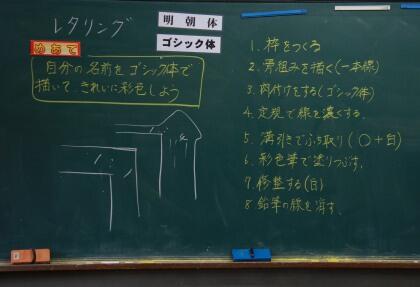 レタリング
明朝体
ゴシック体
めあて
自分の名前をゴシック体で
描いて、きれいに彩色しよう
1. 枠をつくる
2. 骨組みを描く(一本線)
3. 肉付けをする(ゴシック体)
4. 定規で線を濃くする.
5. 溝引きでふち取り(〇+白)
6. 彩色筆で塗りつぶす.
7. 修整する(白)
8. 鉛筆の線を消す.